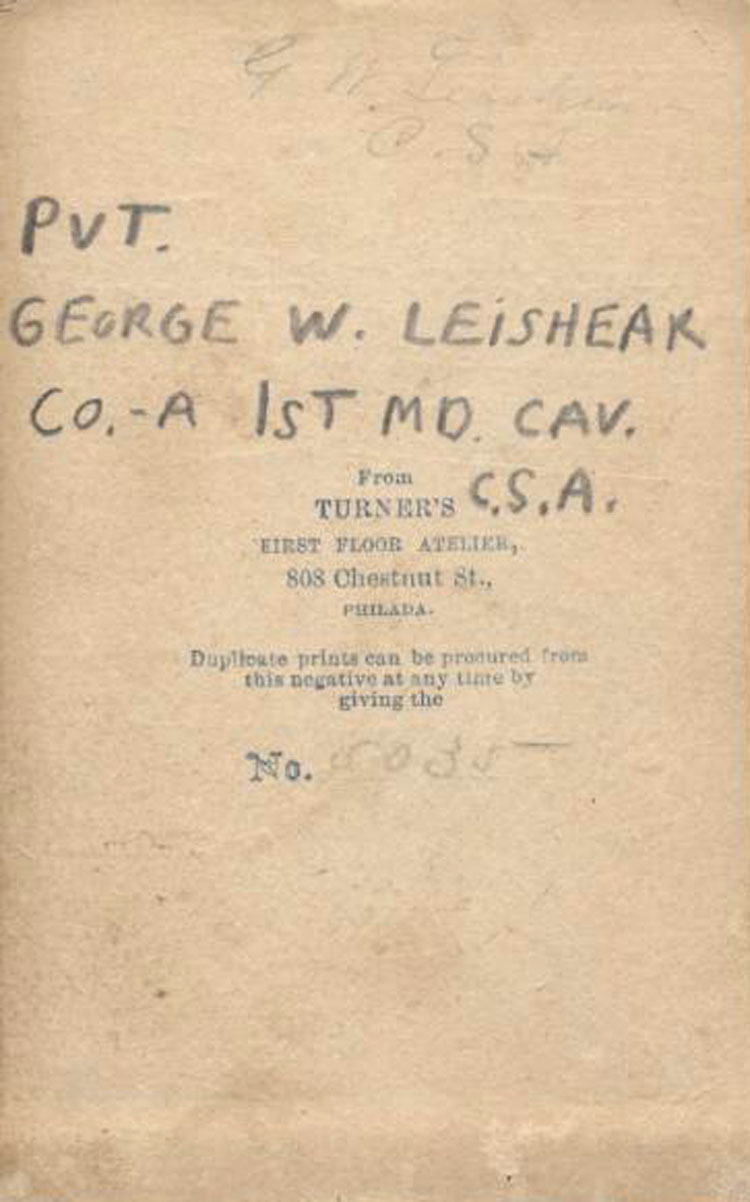 G W
C. S A
PVT.
GEORGE W. LEISHEAR
CO.-A 1ST MD. CAV.
C.S.A.
From
TURNER'S
FIRST FLOOR ATELIER,
808 Chestnut St.,
PHILADA.
Duplicate prints can be procured from
this negative at any time by
giving the
No.